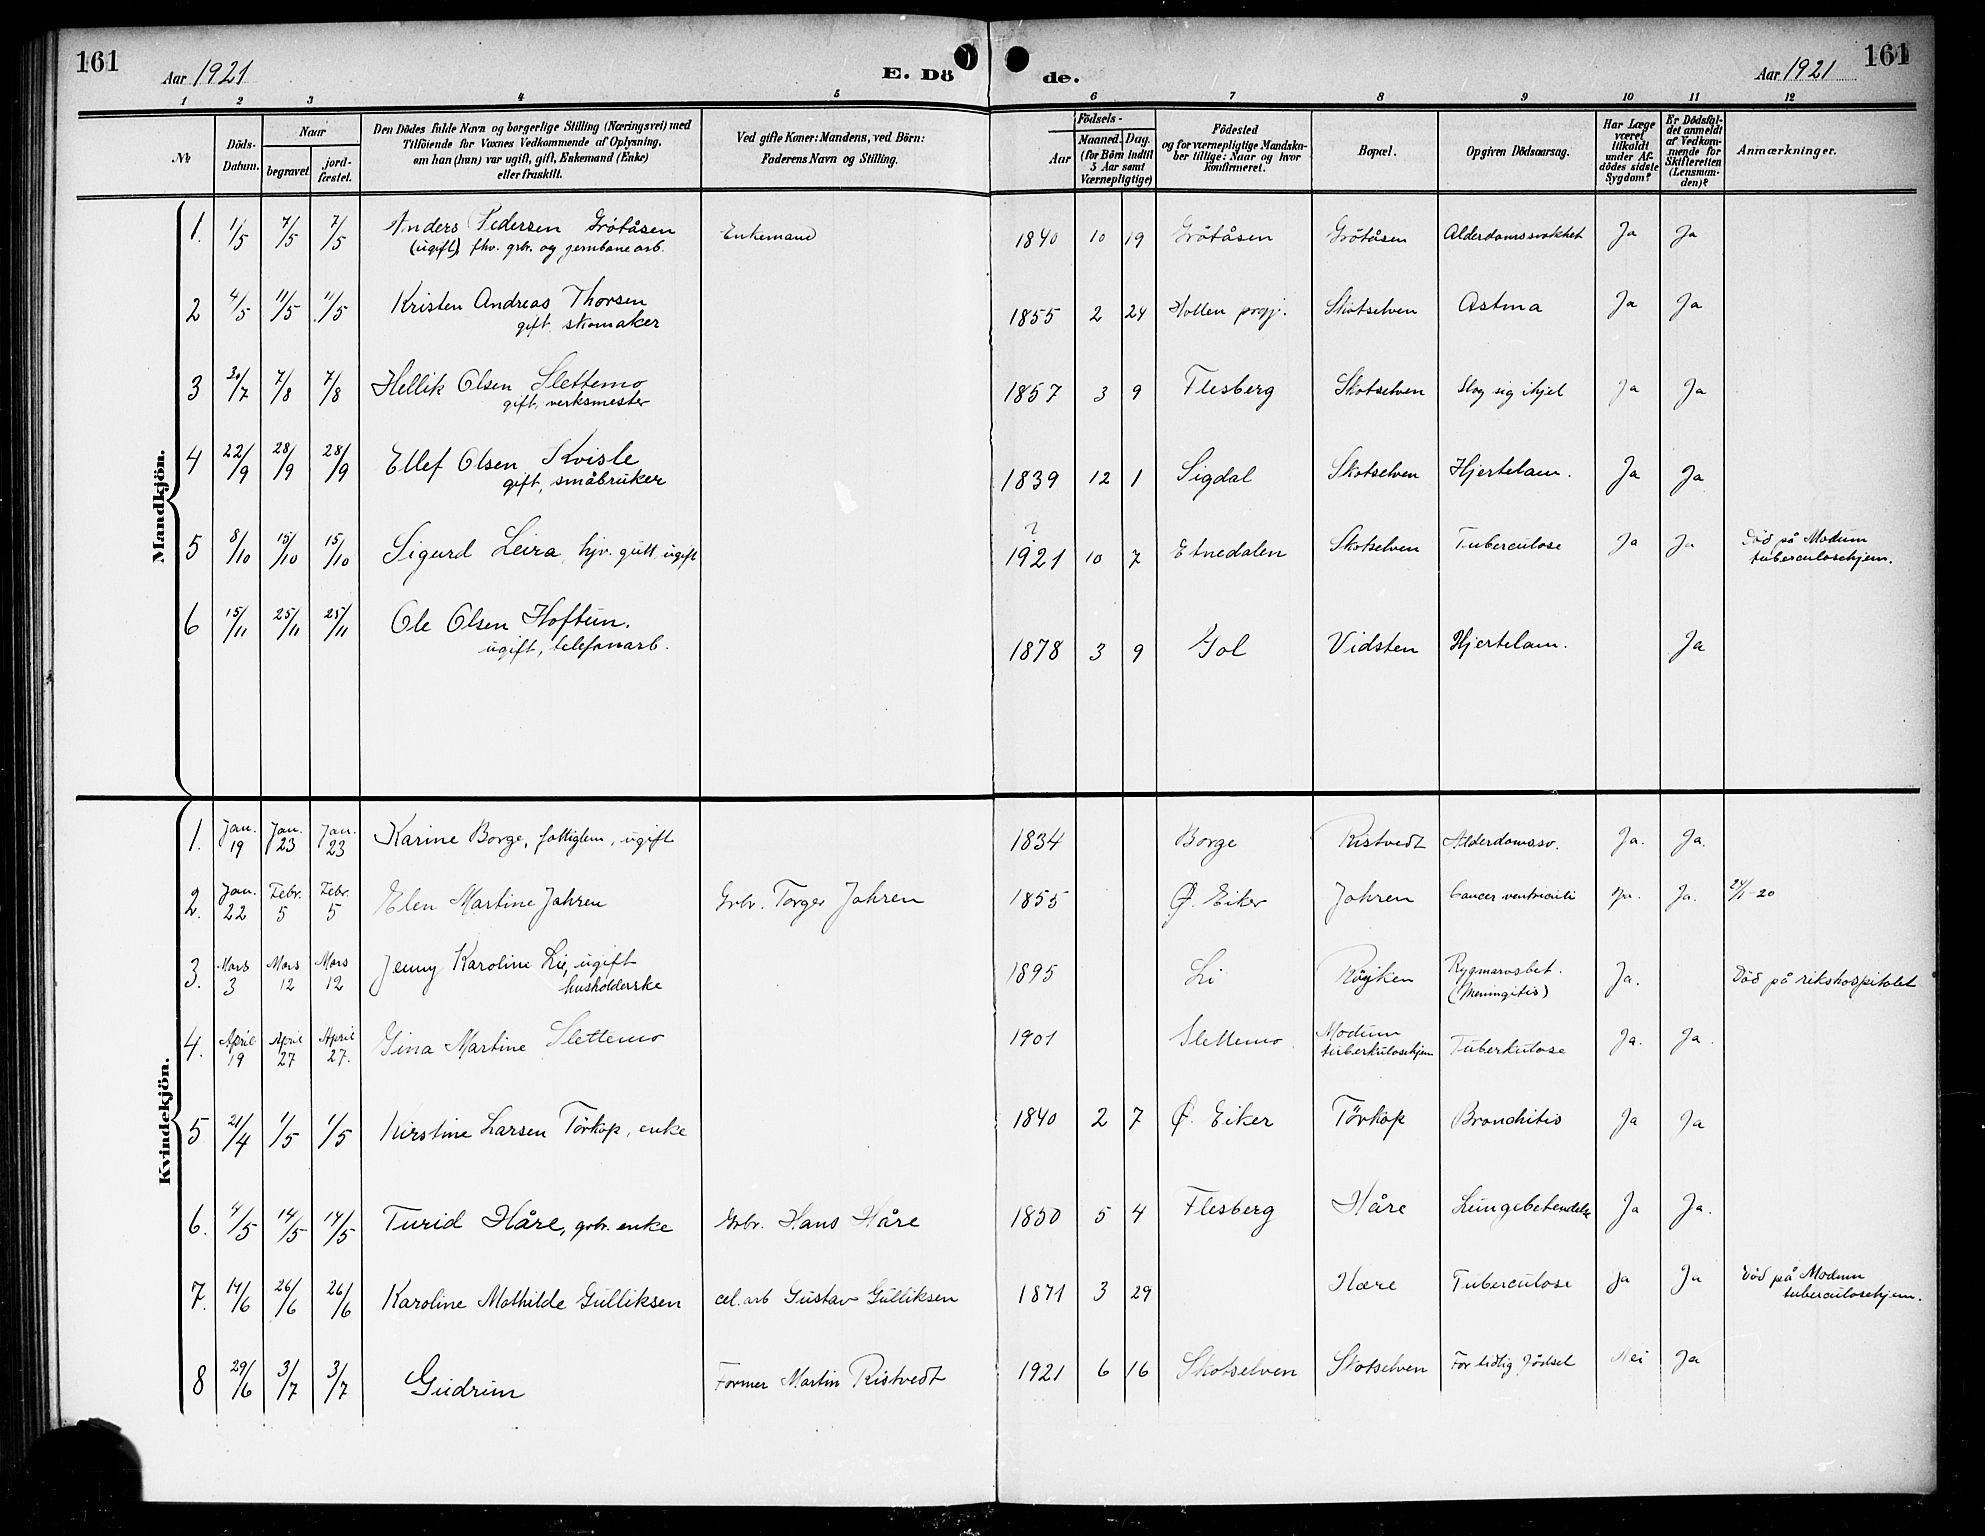 161
Aar 1921
E. Dö
de.
Aar 1921
161
1 2 3 4 5 6 7 8 9 10 11 12
No
Döds-
Datum.
Naar
begravet
jord-
fæstet.
Den Dödes fulde Navn og borgerlige Stilling (Næringsvei) med
Tilföiende for Voxnes Vedkommende af Oplysning,
om han (hun) var ugift, gift, Enkemand (Enke)
eller fraskilt.
Ved gifte Koner: Mandens, ved Börn:
Faderens Navn og Stilling.
Födsels-
Aar
Maaned. Dag.
(for Börn indtil
5 Aar samt
Værnepligtige)
Födested
og for værnepligtige Mandska-
ber tillige: Naar og hvor
konfirmeret.
Bopæl.
Opgiven Dödsaarsag.
Har Læge
været
tilkaldt
under Af-
dödes sidste
Sygdom?
Er Dödsfal-
det anmeldt
af Vedkom-
mende for
Skifteretten
(Lensman-
den)?
Anmærkninger.
Mandkjön.
1. 1/5 7/5 7/5 Anders Pedersen Grötåsen Enkemand 1840 10 19 Grötåsen Grötåsen Alderdomssvakhet Ja Ja
(ugift) fhv. grbr. og jernbanearb.
2 4/5 11/5 11/5 Kristen Andreas Thorsen 1855 2 24 Holten prgj. Skotselven Astma Ja Ja
gift skomaker
3 30/7 7/8 7/8 Hellik Olsen Slettemo 1857 3 9 Flesberg Skotselven Slog sig ihjel Ja Ja
gift, verksmester
4 22/9 28/9 28/9 Ellef Olsen Kvisle 1839 12 1 Sigdal Skotselven Hjertelam. Ja Ja
gift, småbruker
?
5 8/10 15/10 15/10 Sigurd Leira, hjv. gutt ugift 1921 10 7 Etnedalen Skotselven Tuberculose Ja Ja Död på Modum
tuberculosehjem.
6 15/11 25/11 25/11 Ole Olsen Hoftun. 1878 3 9 Gol Vidsten Hjertelam. Ja
ugift, telefonarb.
Kvindekjön.
1. Jan. 19 Jan. 23 Jan. 23 Karine Borge, fattiglem, ugift 1834 Borge Ristvedt Alderdomssv. Ja. Ja.
2. Jan. 22 Febr. 5 Febr. 5 Elen Martine Jahren Grbr. Torger Jahren 1855 Ø. Eiker Jahren Cancer ventriculi Ja. Ja. 24/1-20
3. Mars 3 Mars 12 Mars 12 Jenny Karoline Li, ugift 1895 Li Röyken Rygmarvsbet. Ja. Död på rikshospitalet
husholderske (Meningitis)
4. April 19 April 27 April 27. Gina Martine Slettemo 1901 Slettemo Modum
tuberkulosehjem Tuberkulose Ja. Ja.
5 21/4 1/5 1/5 Kirstine Larsen Törkop, enke 1840 2 7 Ø. Eiker Törkop Bronchitis Ja Ja
6. 4/5 14/5 14/5 Turid Håre, grbr. enke Grbr. Hans Håre 1850 5 4 Flesberg Håre Lungebetendelse Ja Ja.
7. 17/6 26/6 26/6 Karoline Mathilde Gulliksen cel. arb Gustav Gulliksen 1871 3 29 Hære Tuberculose Ja Ja Död på Modum
tuberculosehjem.
8 29/6 3/7 3/7 Gudrun Former Martin Ristvedt 1921 6 16 Skotselven Skotselven For tidlig födsel Nei Ja